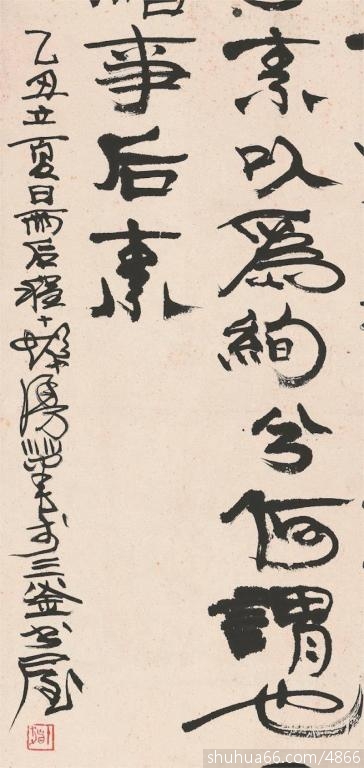 素以爲絢兮何謂也
事后素
乙丑立夏日雨后程十髮漫筆于三釜书屋
shuhua66.com/4866